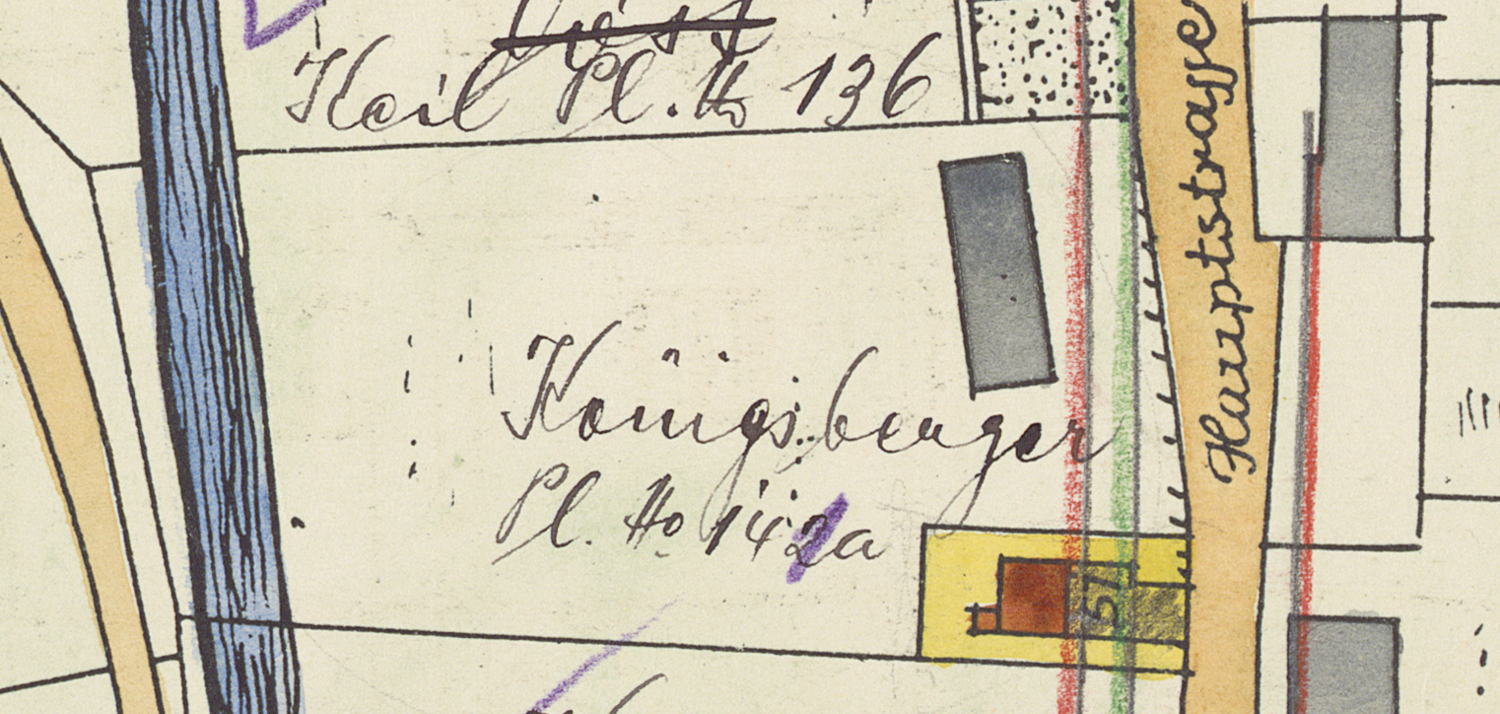 Keil Pl. No 136
Hauptstrasse
Königsberger
Pl. No 142a
57